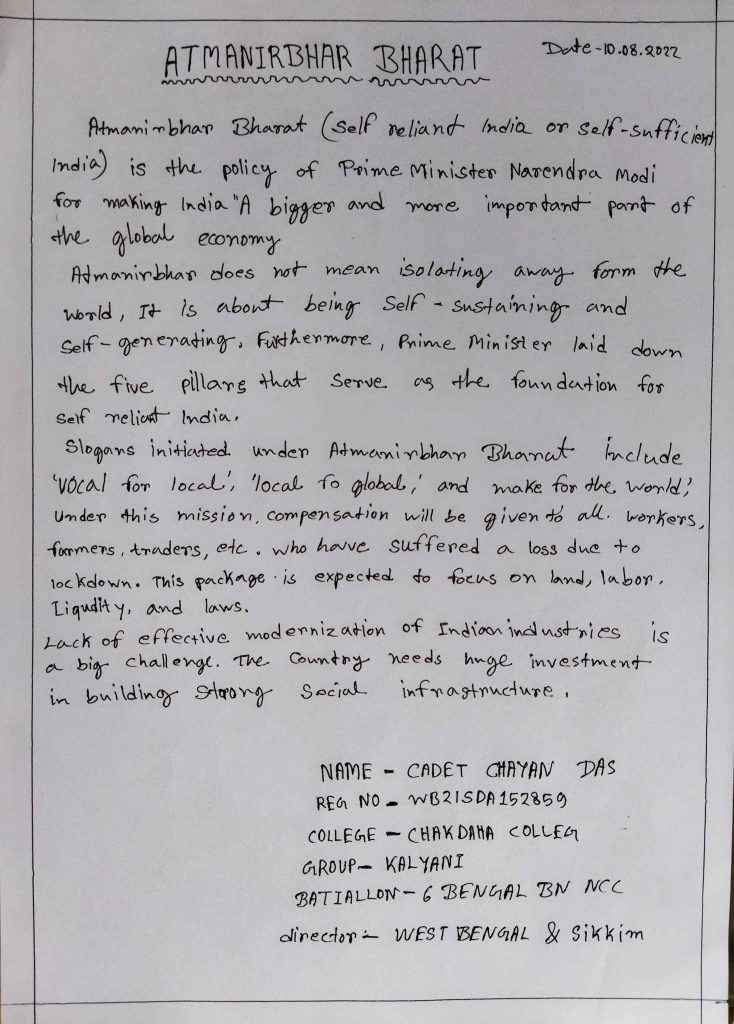 ATMANIRBHAR BHARAT
Date-10.08.2022
Atmanirbhar Bharat (Self reliant India or self-sufficient
India) is the policy of Prime Minister Narendra Modi
for making India "A bigger and more important part of
the global economy
Atmanirbhar does not mean isolating away form the
world, It is about being Self - sustaining and
self - generating. Furthermore, Prime Minister laid down
the five pillars that serve as the foundation for
self reliant India.
Slogans initiated under Atmanirbhar Bharat include
'vocal for local', 'local to global,' and make for the world,'
under this mission, compensation will be given to all. workers,
farmers, traders, etc. who have suffered a loss due to
lockdown. This package is expected to focus on land, labor,
Liqudity, and laws.
Lack of effective modernization of Indian industries is
a big challenge. The Country needs huge investment
in building strong Social infrastructure.
NAME - CADET CHAYAN DAS
REG NO - WB21SDA152859
COLLEGE - CHAKDAHA COLLEG
GROUP - KALYANI
BATIALLON - 6 BENGAL BN NCC
director :- WEST BENGAL & Sikkim